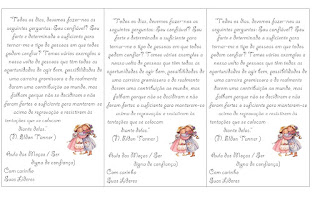 "Todos os dias, devemos fazer-nos as
seguintes perguntas: Sou confiável? Sou
forte e determinada o suficiente para
tornar-me o tipo de pessoa em que todos
podem confiar? Temos vários exemplos a
nossa volta de pessoas que têm todas as
oportunidades de agir bem, possibilidades de
uma carreira promissora e de realmente
darem uma contribuição ao mundo, mas
falham porque não se decidiram e não
foram fortes o suficiente para manterem-se
acima da reprovação e resistirem às
tentações que se colocam
diante delas."
(N. Eldon Tanner)
Aula das Moças / Ser
digna de confiança)
Com carinho
Suas Líderes
"Todos os dias, devemos fazer-nos as
seguintes perguntas: Sou confiável? Sou
forte e determinada o suficiente para
tornar-me o tipo de pessoa em que todos
podem confiar? Temos vários exemplos a
nossa volta de pessoas que têm todas as
oportunidades de agir bem, possibilidades de
uma carreira promissora e de realmente
darem uma contribuição ao mundo, mas
falham porque não se decidiram e não
foram fortes o suficiente para manterem-se
acima da reprovação e resistirem às
tentações que se colocam
diante delas."
(N. Eldon Tanner)
Aula das Moças / Ser
digna de confiança)
Com carinho
Suas Líderes
"Todos os dias, devemos fazer-nos as
seguintes perguntas: Sou confiável? Sou
forte e determinada o suficiente para
tornar-me o tipo de pessoa em que todos
podem confiar? Temos vários exemplos a
nossa volta de pessoas que têm todas as
oportunidades de agir bem, possibilidades de
uma carreira promissora e de realmente
darem uma contribuição ao mundo, mas
falham porque não se decidiram e não
foram fortes o suficiente para manterem-se
acima da reprovação e resistirem às
tentações que se colocam
diante delas."
(N. Eldon Tanner)
Aula das Moças / Ser
digna de confiança)
Com carinho
Suas Líderes